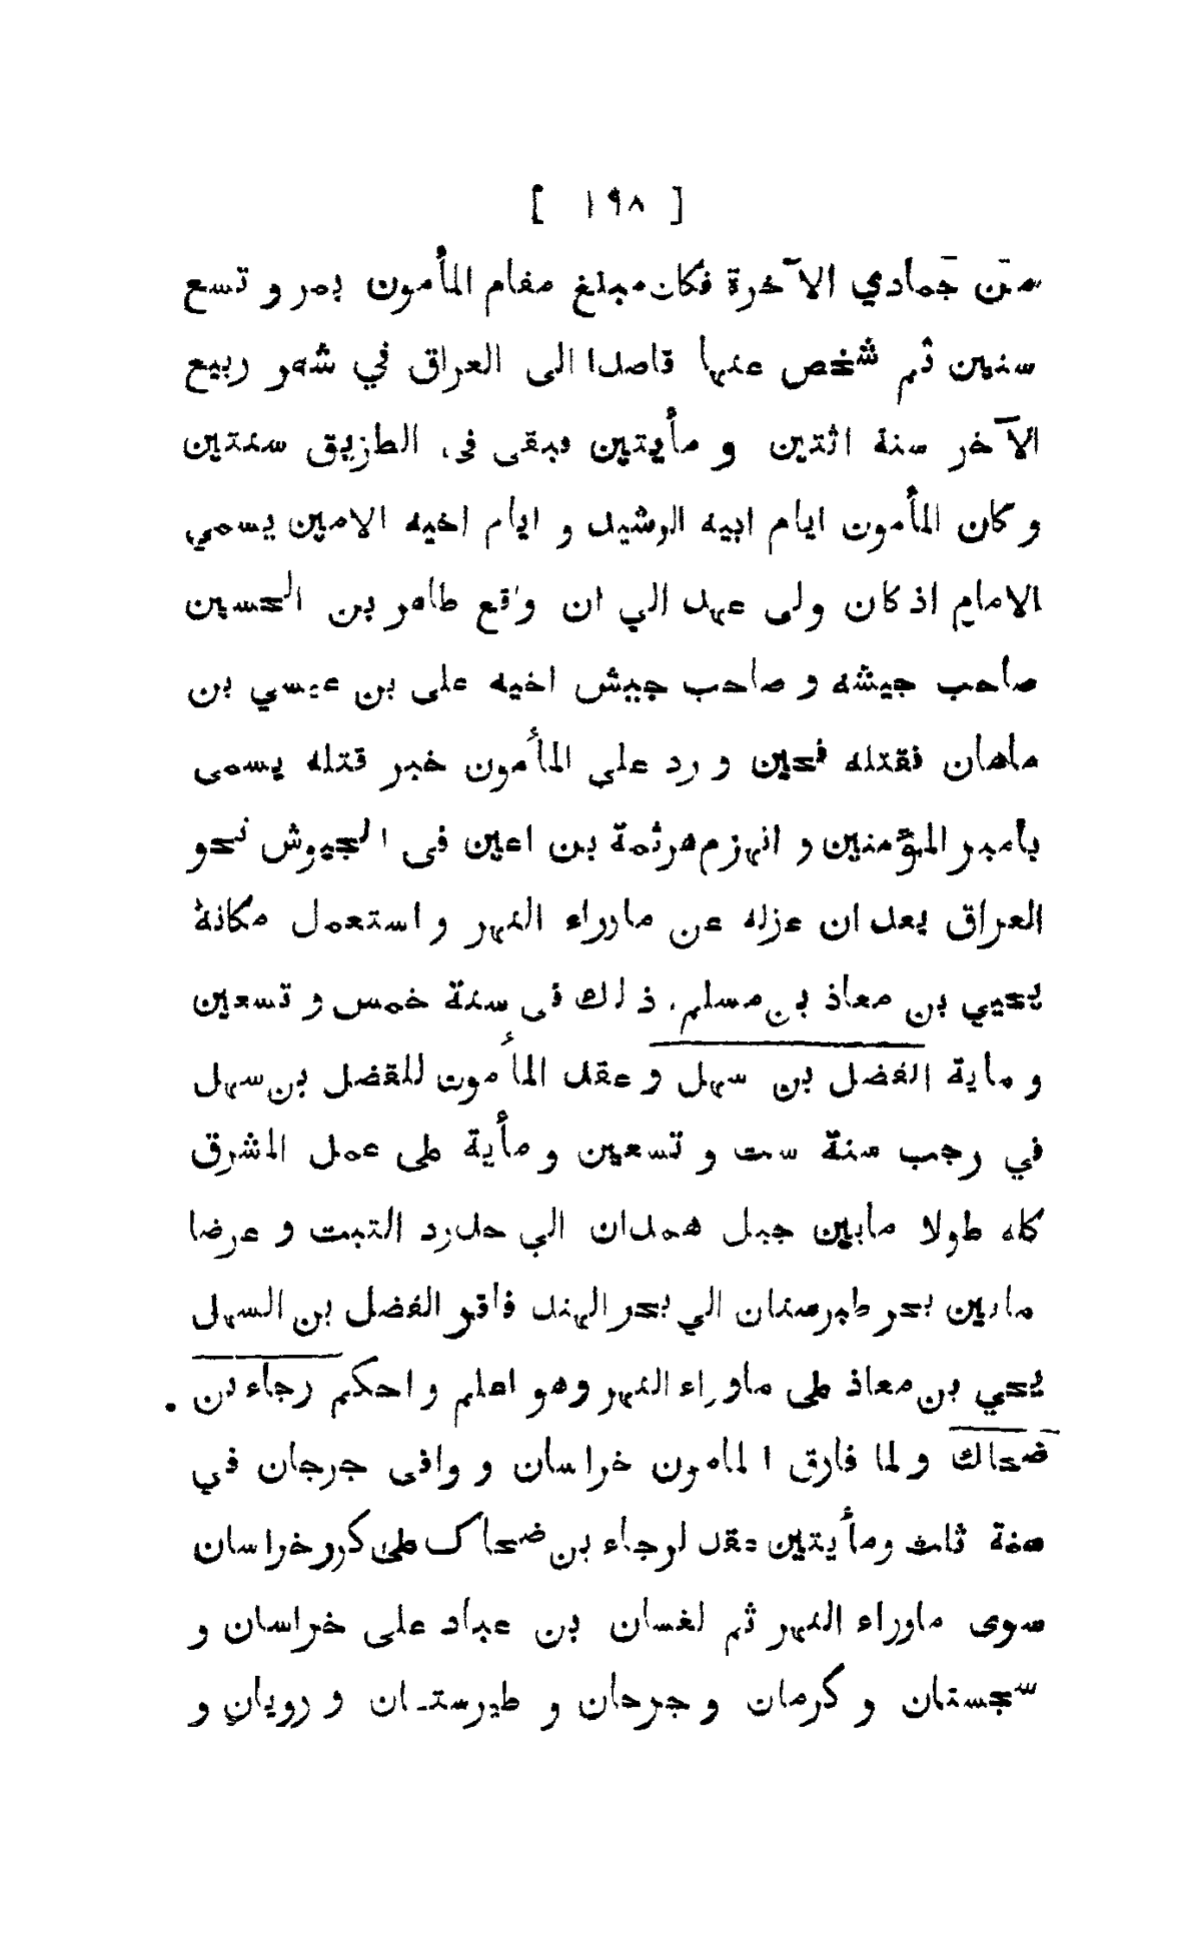 [ ١٩٨ ]
من جمادي الآخرة فكان مبلغ مقام المأمون بمر و تسع
سنين ثم شخص عنها قاصدا الى العراق في شهر ربيع
الآخر سنة اثتين و مأيتين فبقى فى الطريق سنتين
و كان المأمون ايام ابيه الرشيد و ايام اخيه الامين يسمي
الامام اذ كان ولى عهد الي ان واقع طاهر بن الحسين
صاحب جيشه و صاحب جيش اخيه على بن عيسي بن
ماهان فقتله فحين و رد علي المأمون خبر قتله يسمى
بأمير المؤمنين و انهزم هرثمة بن اعين فى الجيوش نحو
العراق بعد ان عزله عن ماوراء النهر و استعمل مكانة
يحيي بن معاذ بن مسلم. ذلك فى سنة خمس و تسعين
و ماية الفضل بن سهل و عقد المأمون للفضل بن سهل
في رجب سنة ست و تسعين و مأية على عمل المشرق
كله طولا مابين جبل همدان الي حدود التبت و عرضا
مابين بحر طبرستان الي بحر الهند فاقر الفضل بن السهل
يحي بن معاذ على ماوراء النهر وهو اعلم و احكم رجاء بن
ضحاك و لما فارق المامون خراسان و وافى جرجان في
سنة ثلث ومأيتين عقد لرجاء بن ضحاك على كور خراسان
سوى ماوراء النهر ثم لغسان بن عباد على خراسان و
سجستان و كرمان و جرجان و طبرستـان و رويان و